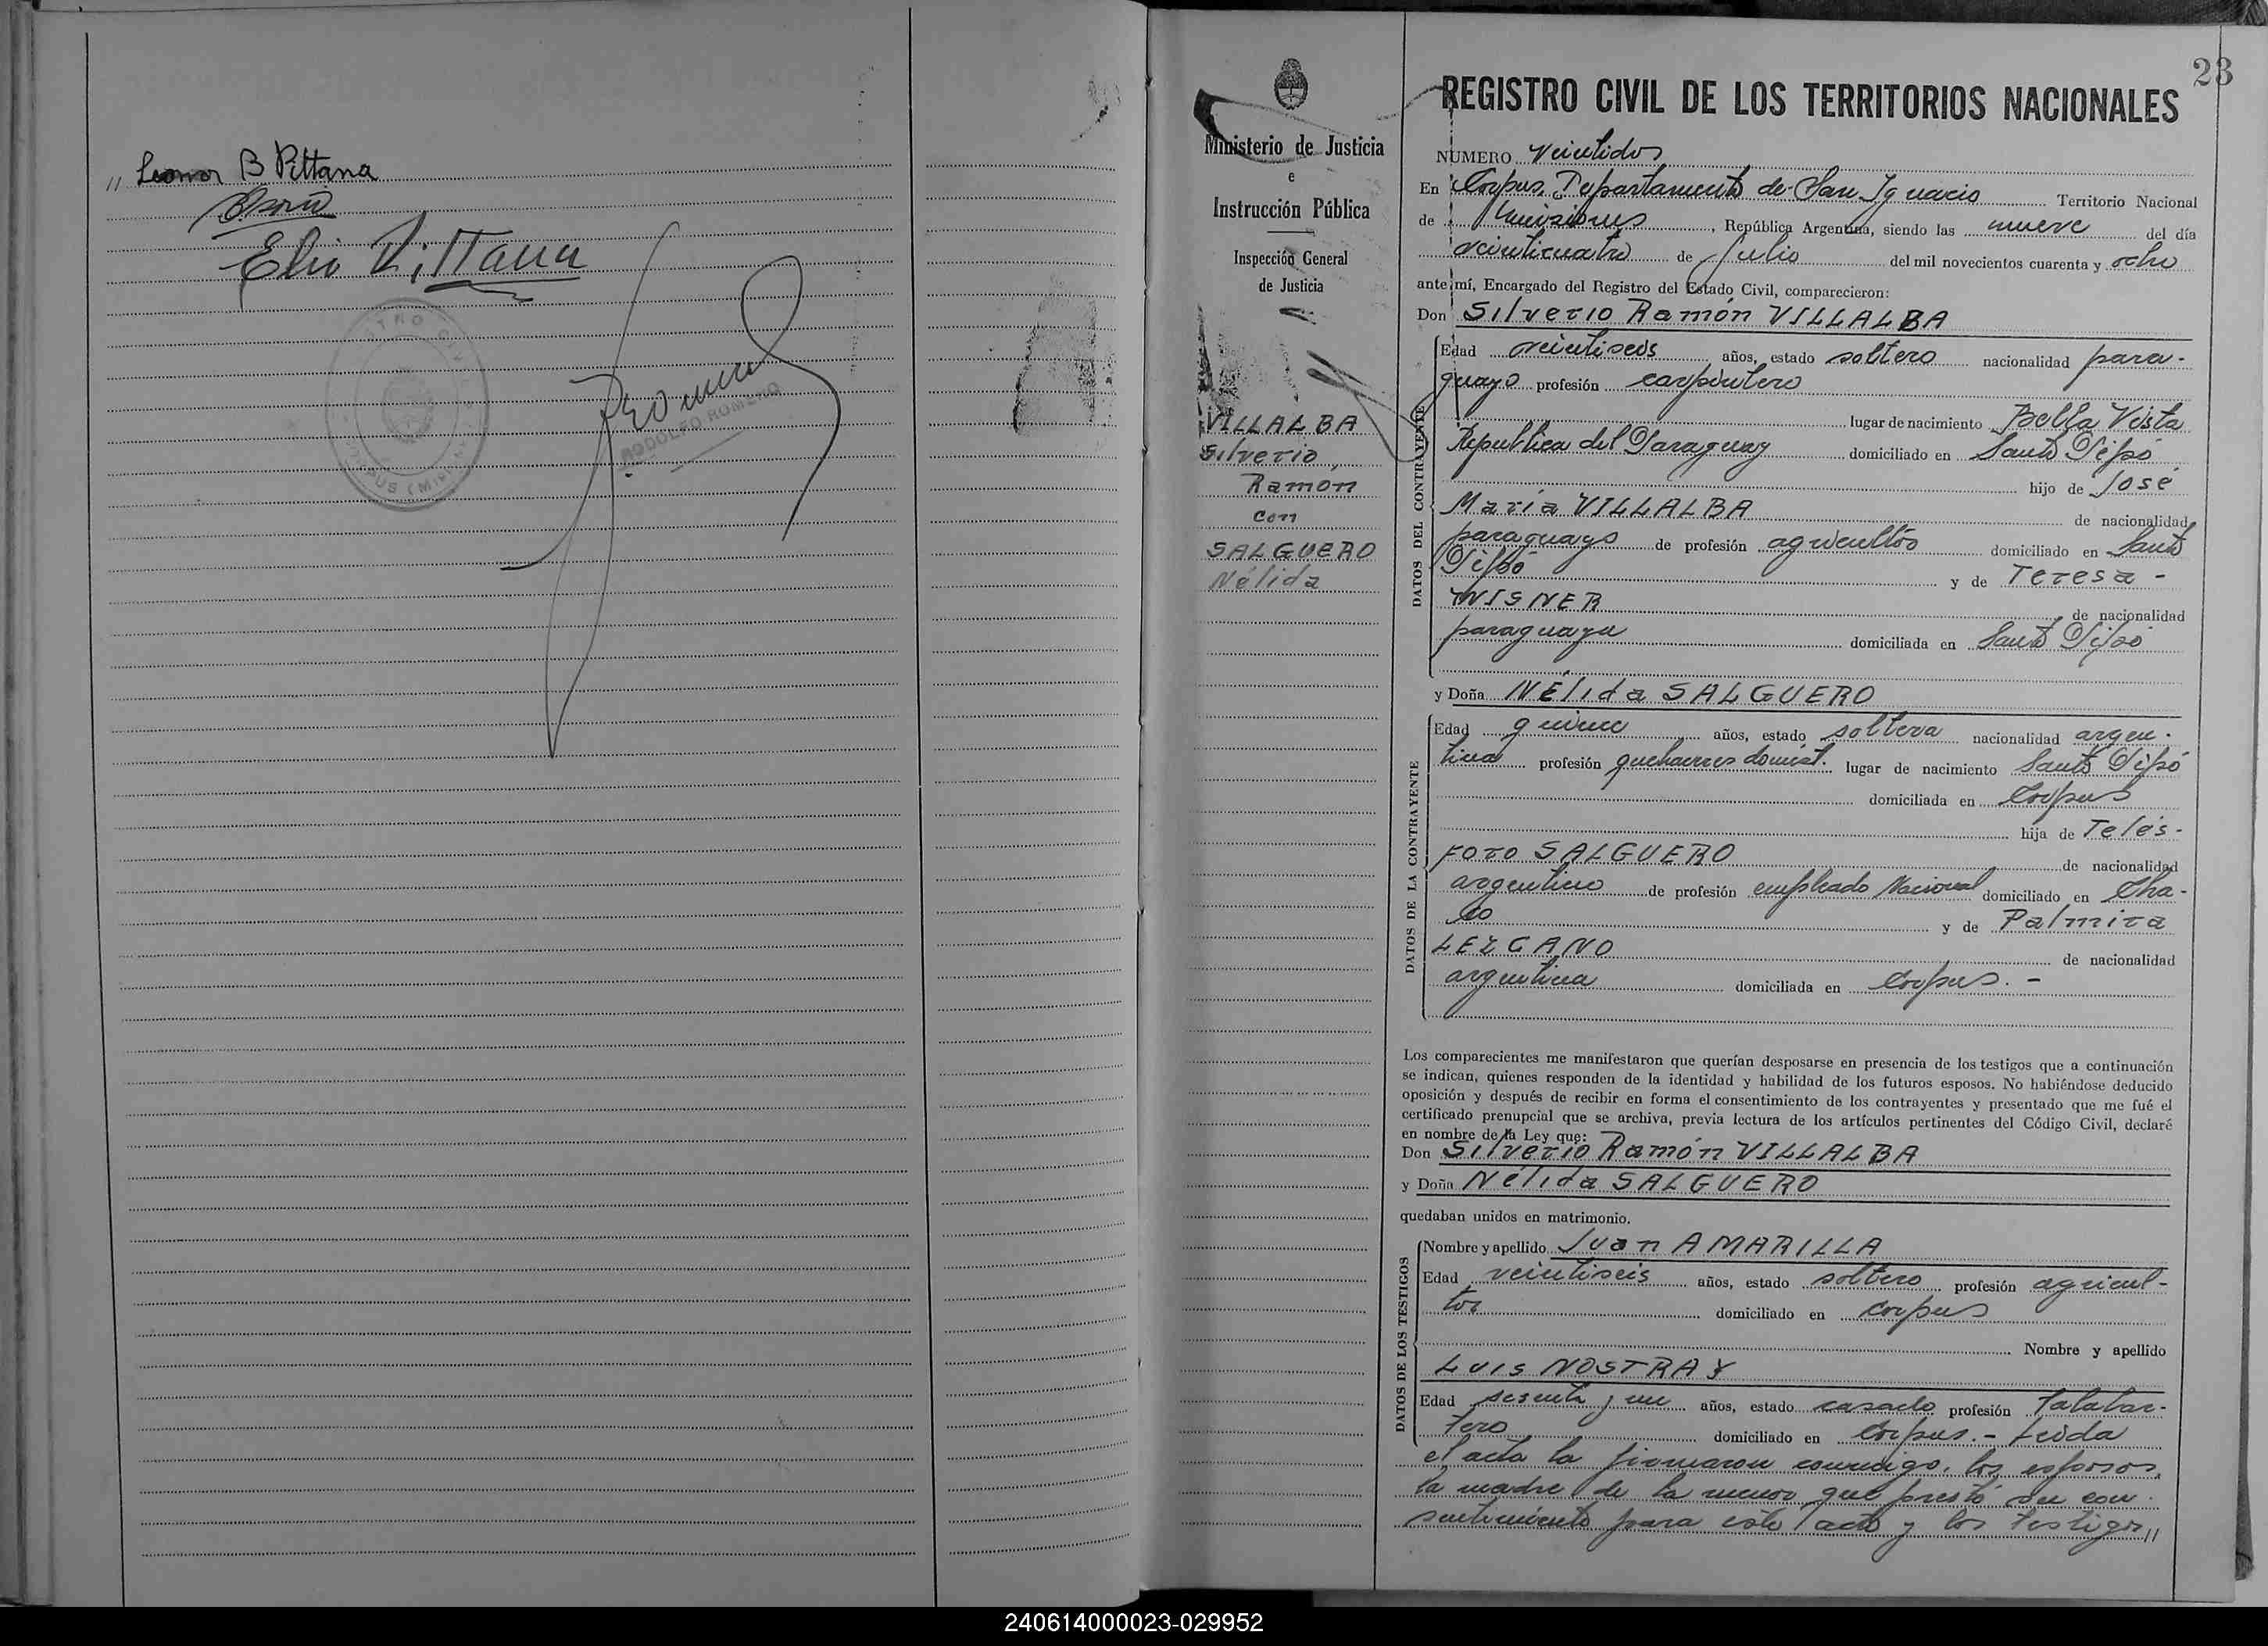 „ Leonor B Pittana
Elio Pittana
REGISTRO CIVIL
CORPUS (Mnes)
RODOLFO ROMERO
23
Ministerio de Justicia
e
Instrucción Pública
Inspección General
de Justicia
VILLALBA
Silverio
Ramón
con
SALGUERO
Nélida
REGISTRO CIVIL DE LOS TERRITORIOS NACIONALES
NÚMERO veintidos
En Corpus, Departamento de San Ignacio Territorio Nacional
de Misiones, República Argentina, siendo las nueve del día
veinticuatro de Julio del mil novecientos cuarenta y ocho
ante mí, Encargado del Registro del Estado Civil, comparecieron:
Don Silverio Ramón VILLALBA
DATOS DEL CONTRAYENTE
Edad veintiseis años, estado soltero nacionalidad para-
guayo profesión carpintero
lugar de nacimiento Bella Vista
Republica del Paraguay domiciliado en Santo Pipó
hijo de José
María VILLALBA de nacionalidad
paraguayo de profesión agricultor domiciliado en Santo
Pipó y de Teresa -
WISNER de nacionalidad
paraguaya domiciliada en Santo Pipó
y Doña Nélida SALGUERO
DATOS DE LA CONTRAYENTE
Edad quince años, estado soltera nacionalidad argen-
tina profesión quehaceres domést. lugar de nacimiento Santo Pipó
domiciliada en Corpus
hija de Telés-
foro SALGUERO de nacionalidad
argentino de profesión empleado Nacional domiciliado en Cha-
co y de Palmira
LEZCANO de nacionalidad
argentina domiciliada en Corpus. -
Los comparecientes me manifestaron que querían desposarse en presencia de los testigos que a continuación
se indican, quienes responden de la identidad y habilidad de los futuros esposos. No habiéndose deducido
oposición y después de recibir en forma el consentimiento de los contrayentes y presentado que me fué el
certificado prenupcial que se archiva, previa lectura de los artículos pertinentes del Código Civil, declaré
en nombre de la Ley que:
Don Silverio Ramón VILLALBA
y Doña Nélida SALGUERO
quedaban unidos en matrimonio.
DATOS DE LOS TESTIGOS
Nombre y apellido Juan AMARILLA
Edad veintiseis años, estado soltero profesión agricul-
tor domiciliado en Corpus
Nombre y apellido
Luis NOSTRAY
Edad sesenta y un años, estado casado profesión Talabar-
tero domiciliado en Corpus. - Leida
el acta la firmaron conmigo, los esposos,
la madre de la menor que prestó su con-
sentimiento para este acto y los testigos //
240614000023-029952